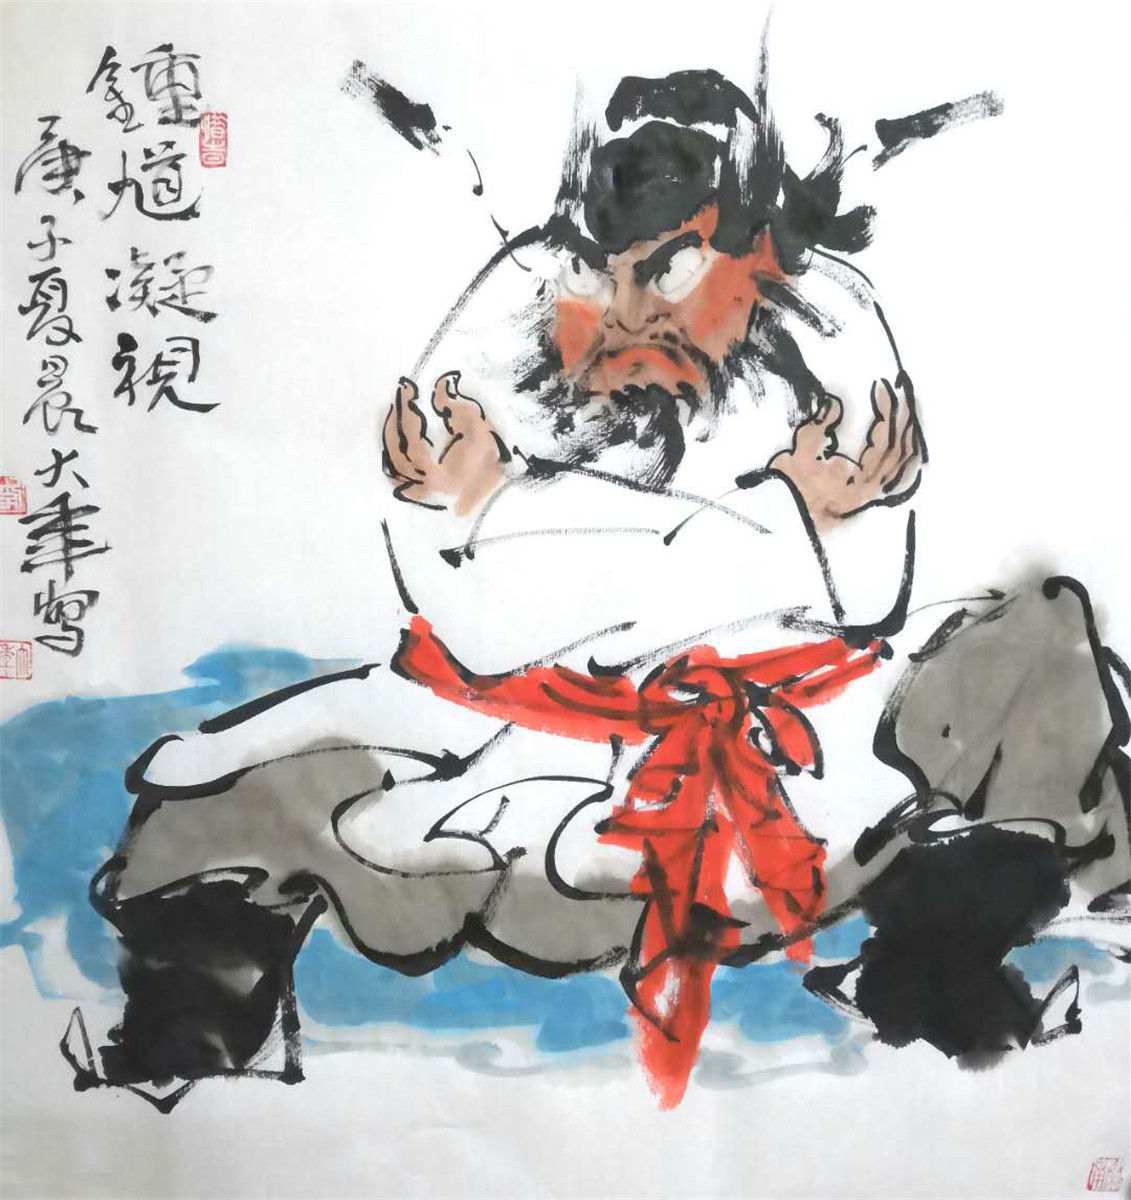 鍾馗凝視
庚子夏晨大年寫